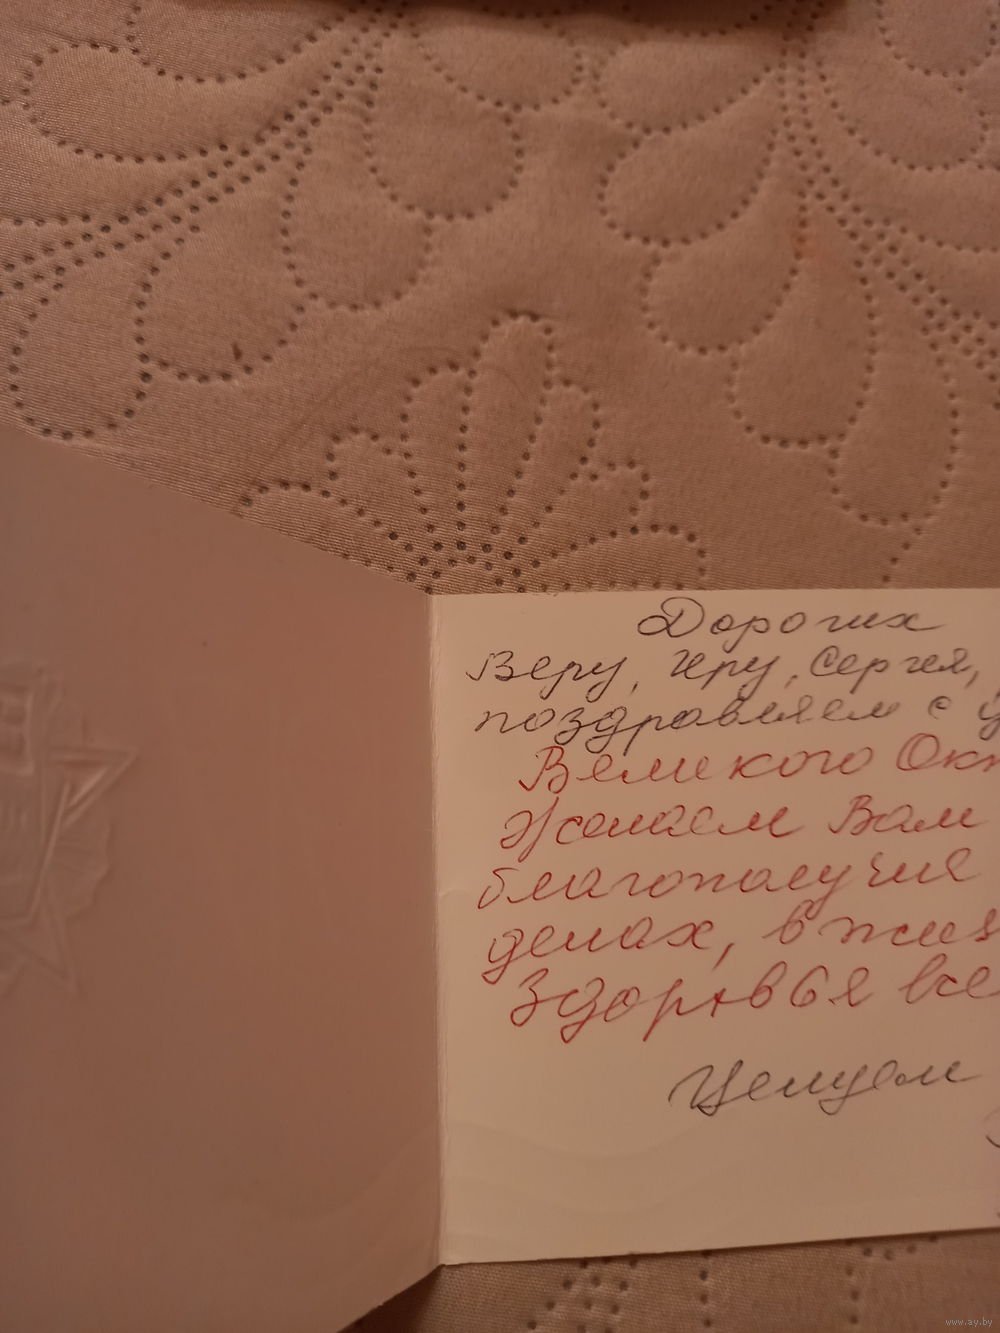 Дорогих
Веру, Геру, Сергея,
поздравляем с
Великого Окт
Желаем Вам
благополучия
делах, в жиз
здоровья все
Целуем
www.ay.by